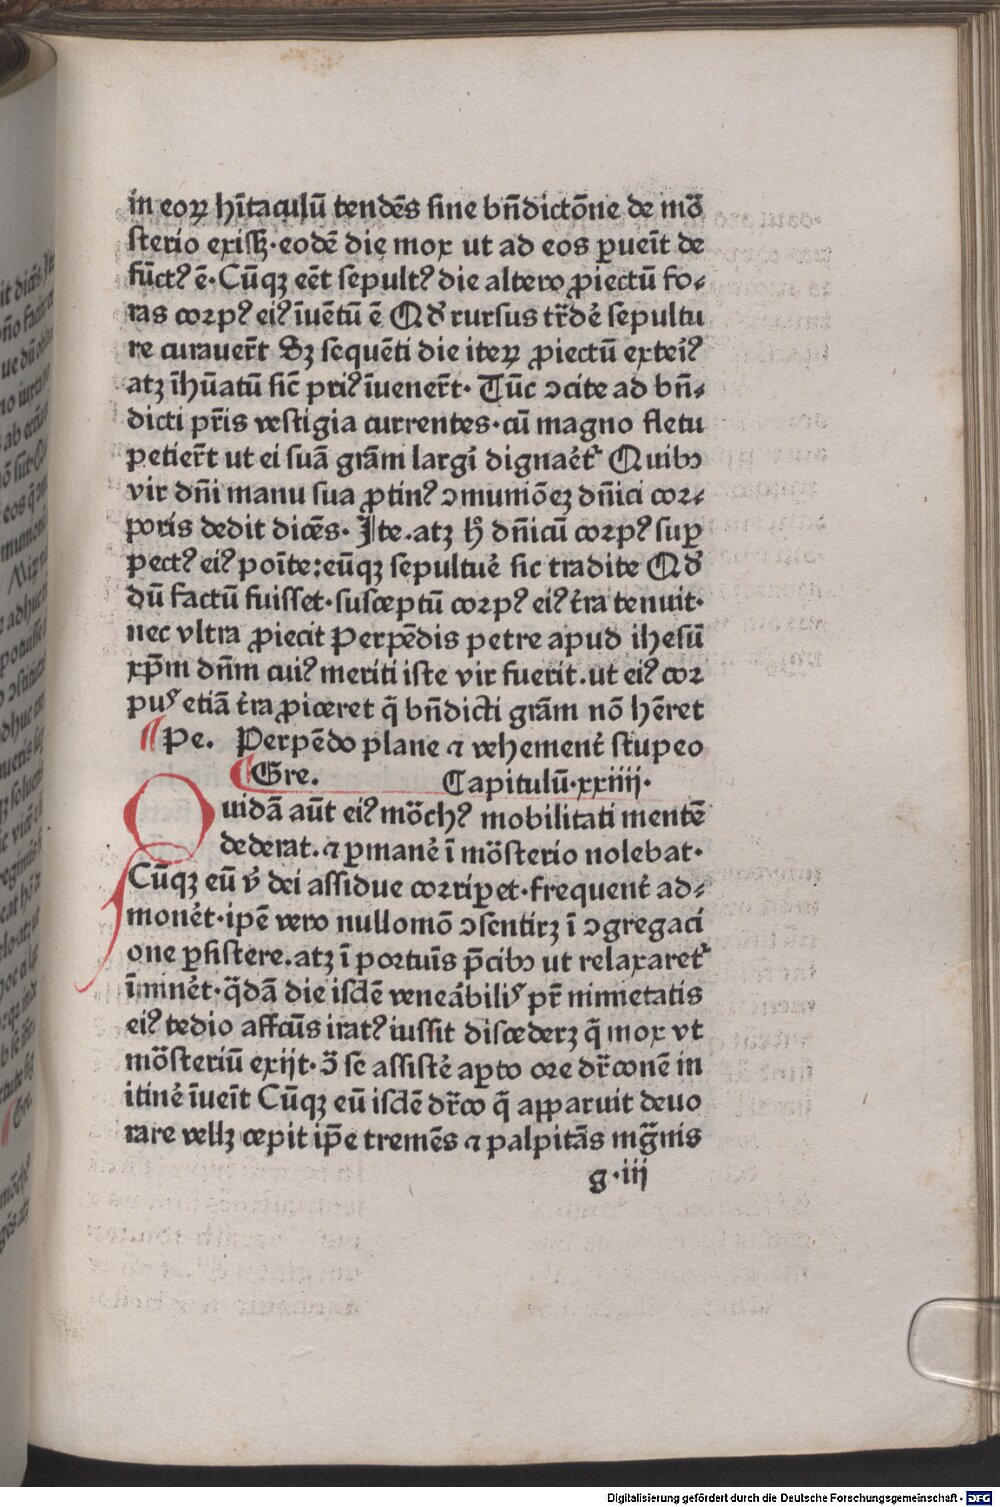 in eoꝝ hītaculū tendēs sine bn̄dictōne de mō
sterio exissꝫ·eodē die mox ut ad eos ꝑueīt de
fūctꝰ ē·Cūqꝫ eēt sepultꝰ die altero ꝓiectū fo⸗
ras corpꝰ eiꝰ īuētū ē Qđ rursus tr̄dē sepultu
re curauer̄t Sꝫ sequēti die iteꝝ ꝓiectū exteiꝰ
atꝫ īhūatū sic̄ priꝰ īuener̄t· Tūc ↄcite ad bn̄⸗
dicti pr̄is vestigia currentes·cū magno fletu
petier̄t ut ei suā grām largī dignaēt᷑ Quibꝫ
vir dn̄i manu sua ꝓtinꝰ ↄmuniōeꝫ dn̄ici cor⸗
poris dedit dicēs· Ite.atꝫ h̄ dn̄icū corpꝰ suꝑ
pectꝰ eiꝰ poīte:eūqꝫ sepultuē sic tradite Qđ
dū factū fuisset·susceptū corpꝰ eiꝰ t̄ra tenuit·
nec vltra ꝓiecit Perpēdis petre apud ihesū
xp̄m dn̄m cuiꝰ meriti iste vir fuerit.ut eiꝰ cor
pusꝰ etiā t̄ra ꝓiceret q̄ bn̄dicti grām nō hēret
Pe. Perpēdo plane ⁊ vehement̄ stupeo
Gre. Capitulū·xxiiij·
Quidā aūt eiꝰ mōchꝰ mobilitati mentē
dederat.⁊ ꝑmanē ī mōsterio nolebat·
Cūqꝫ eū v̄ dei assidue corriꝑet·frequent̄ ad⸗
monēt·ipē vero nullomō ↄsentirꝫ ī ↄgregaci
one ꝑsistere.atꝫ ī portuīs p̄cibꝫ ut relaxaret᷑
īminēt·q̄dā die isdē veneābilis pr̄ nimietatis
eiꝰ tedio affcūs iratꝰ iussit discederꝫ q̄ mox vt
mōsteriū exijt·ↄ̄ se assistē aꝑto ore dr̄conē in
itinē īueīt Cūqꝫ eū isdē dr̄co q̄ apparuit deuo
rare vellꝫ cepit ip̄e tremēs ⁊ palpitās mḡnis
g·iij
Digitalisierung gefördert durch die Deutsche Forschungsgemeinschaft · DFG